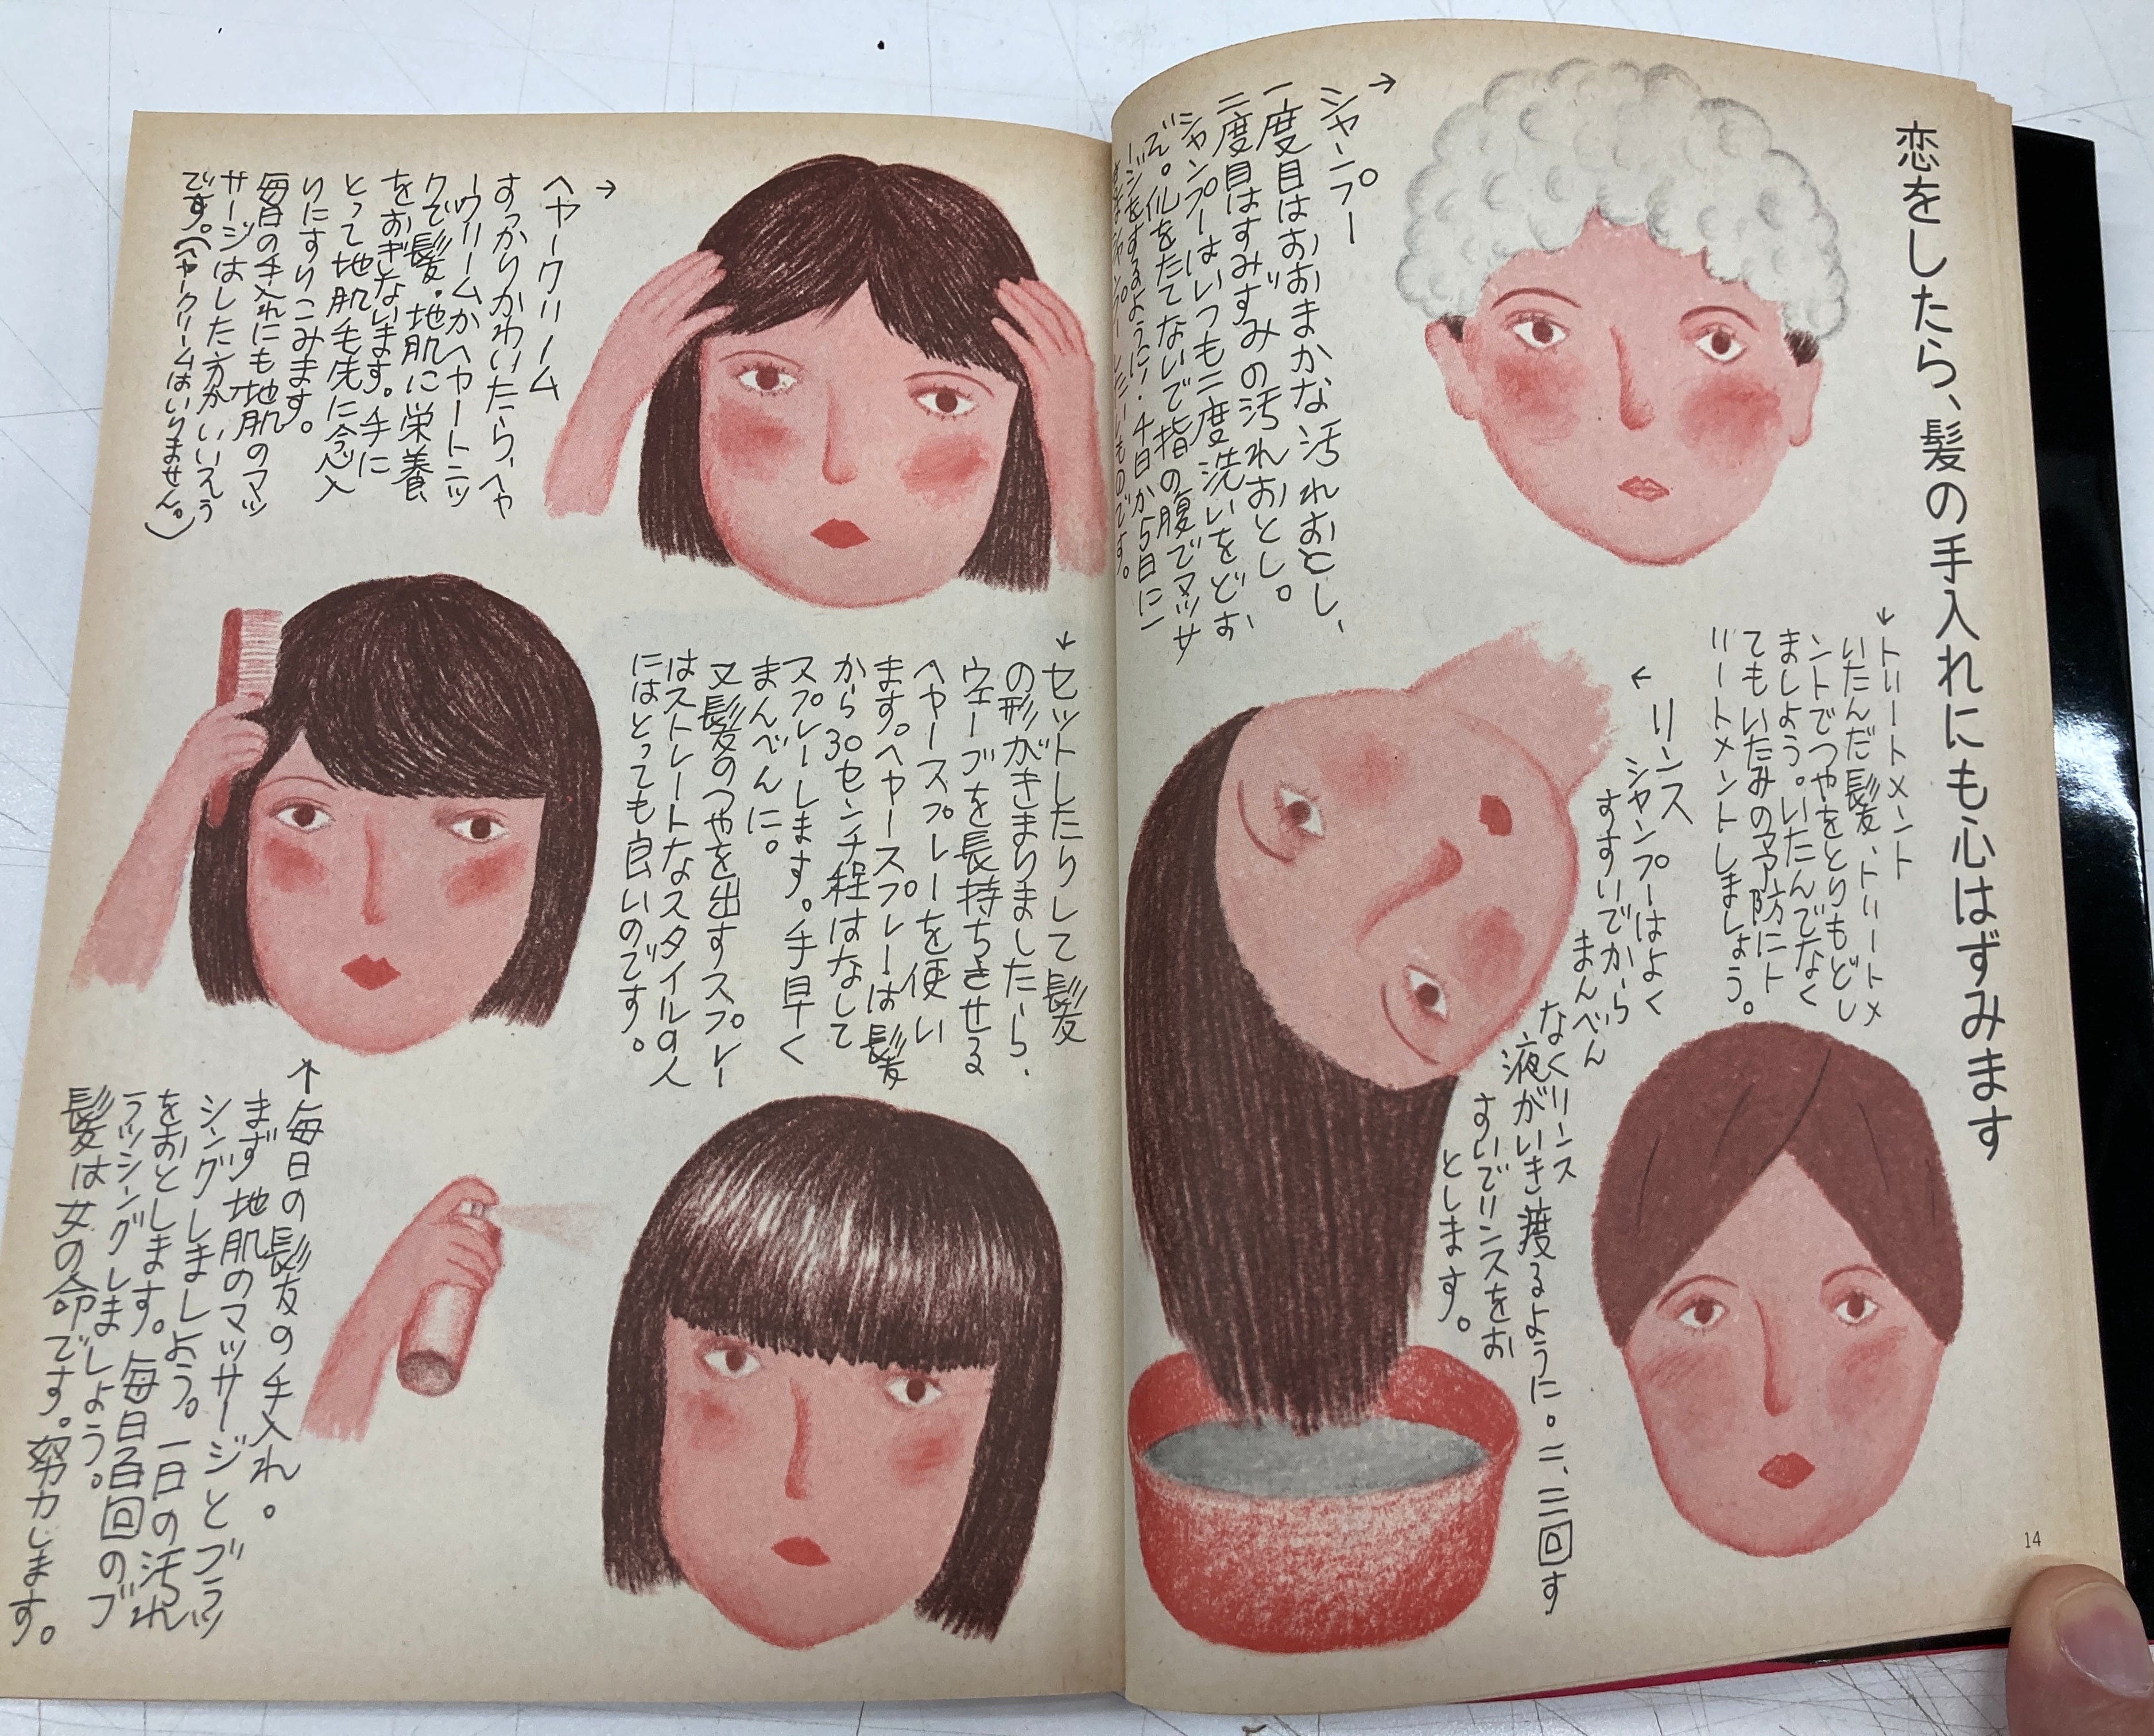 恋をしたら、髪の手入れにも心はずみます
→
シャンプー
一度目はおおまかな汚れおとし、
二度目はすみずみの汚れおとし。
シャンプーはいつも二度洗いをどう
ぞ。爪をたてないで指の腹でマッサ
ージをするように！4日か5日に一
度はシャンプーしたいものです。
↓
トリートメント
いたんだ髪、トリートメ
ントでつやをとりもどし
ましょう。いたんでなく
てもいたみの予防にト
リートメントしましょう。
←
リンス
シャンプーはよく
すすいでから
まんべん
なくリンス
液がいき渡るように。二、三回す
すいでリンスをお
とします。
14
→
ヘヤークリーム
すっかりかわいたら、ヘヤ
ークリームかヘヤートニッ
クで髪。地肌に栄養
をおぎないます。手に
とって地肌毛先に念入
りにすりこみます。
毎日の手入れにも地肌のマッ
サージはした方がいいそう
です。(ヘヤークリームはいりません。)
↓
セットしたりして髪
の形がきまりましたら、
ウェーブを長持ちさせる
ヘヤースプレーを使い
ます。ヘヤースプレーは髪
から30センチ程はなして
スプレーします。手早く
まんべんに。
又髪のつやを出すスプレー
はストレートなスタイルの人
にはとっても良いのです。
↑
毎日の髪の手入れ。
まず地肌のマッサージとブラッ
シングしましょう。一日の汚れ
をおとします。毎日百回のブ
ラッシングしましょう。
髪は女の命です。努力します。